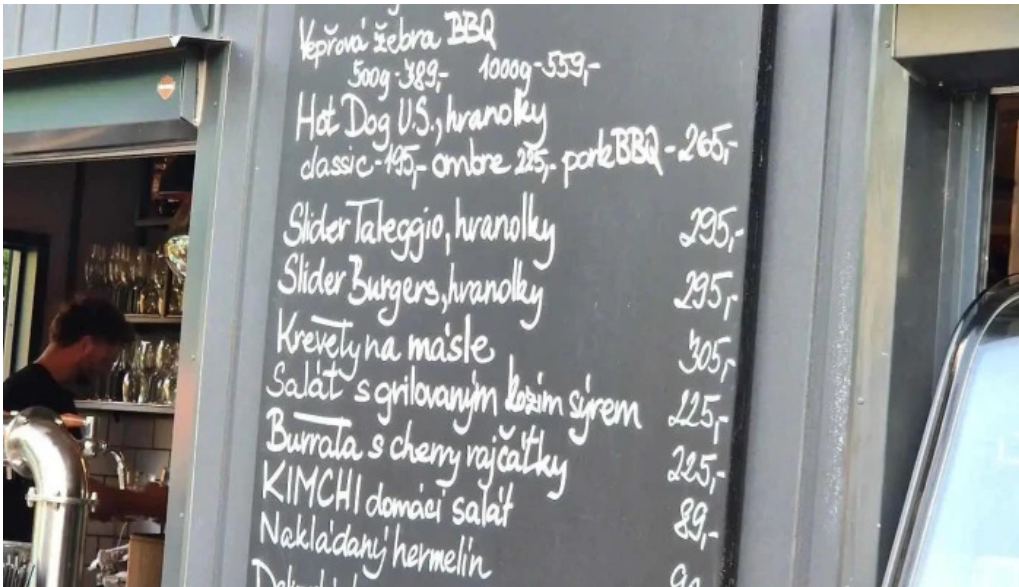 Vepřová žebra BBQ
500g-389,- 1000g-559,-
Hot Dog U.S., hranolky
classic-195,- ombre 225,- pork BBQ - 265,-
Slider Taleggio, hranolky 295,-
Slider Burgers, hranolky 295,-
Krevety na másle 305,-
Salát s grilovaným kozím sýrem 225,-
Burrata s cherry rajčátky 225,-
KIMCHI domácí salát 89,-
Nakládaný hermelín